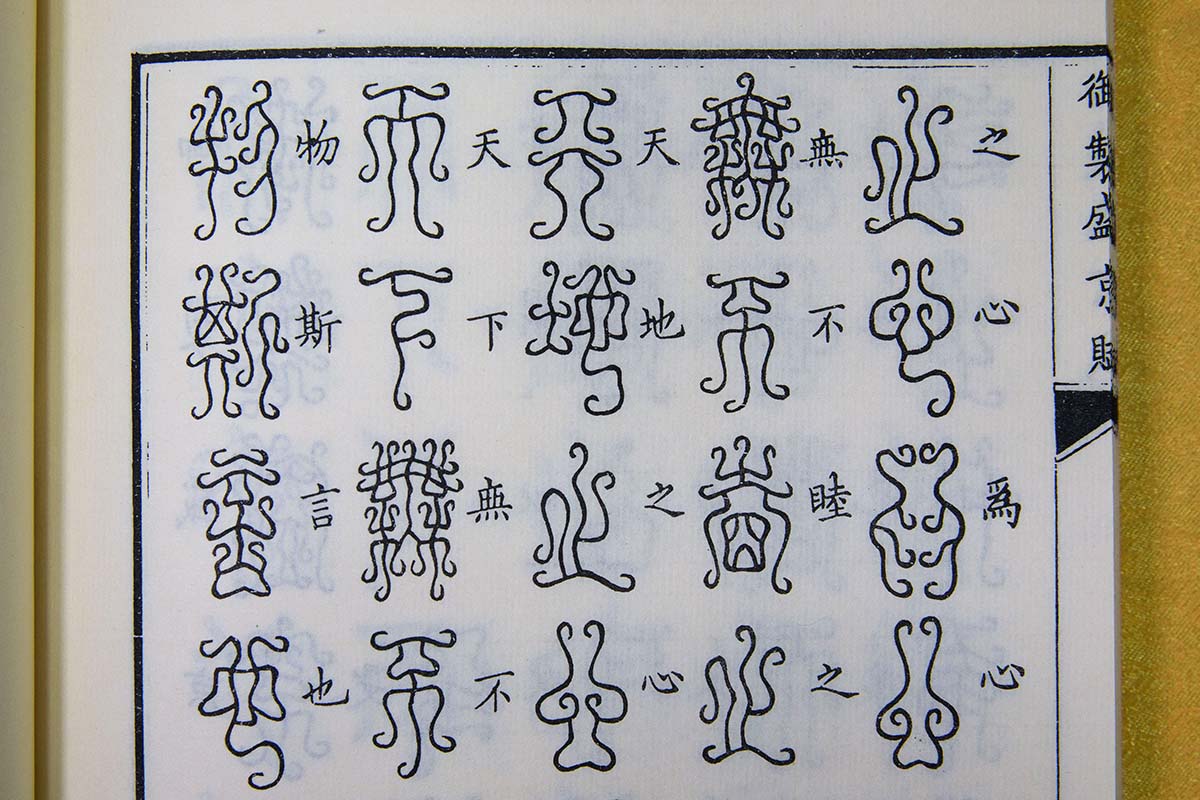 御製盛京賦
之心爲心
無不睦之
天地之心
天下無不
物斯言也